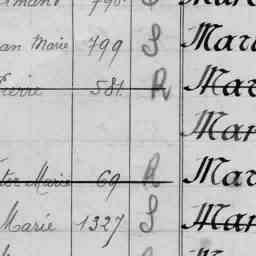 an Marie 799 S Mar
Pierre 581 R Mar
Mar
tor Marie 69 R Mar
Marie 1327 S Mar